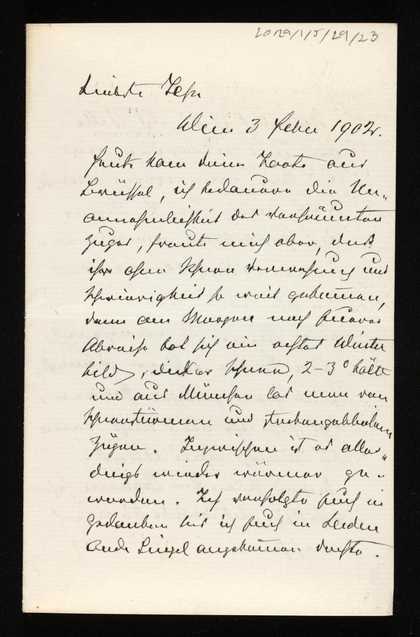 Liebste
Wien 3 Feber 1902.
heute kam deine Karte aus
Brüssel, ich bedauere die Un-
annehmlichkeit des versäumten
Zuges, freute mich aber, daß
ihr ohne Schnee und
Schwierigkeit so weit gekommen,
denn am Morgen nach eurer
Abreise bot sich ein echtes Winter
bild, dicker Schnee, 2-3° Kälte
und aus München las man von
Schneestürmen und steckengebliebenen
Zügen. Inzwischen ist es aller-
dings wieder wärmer ge-
worden. Ich verfolgte euch in
Gedanken bis ich euch in Leiden
angekommen